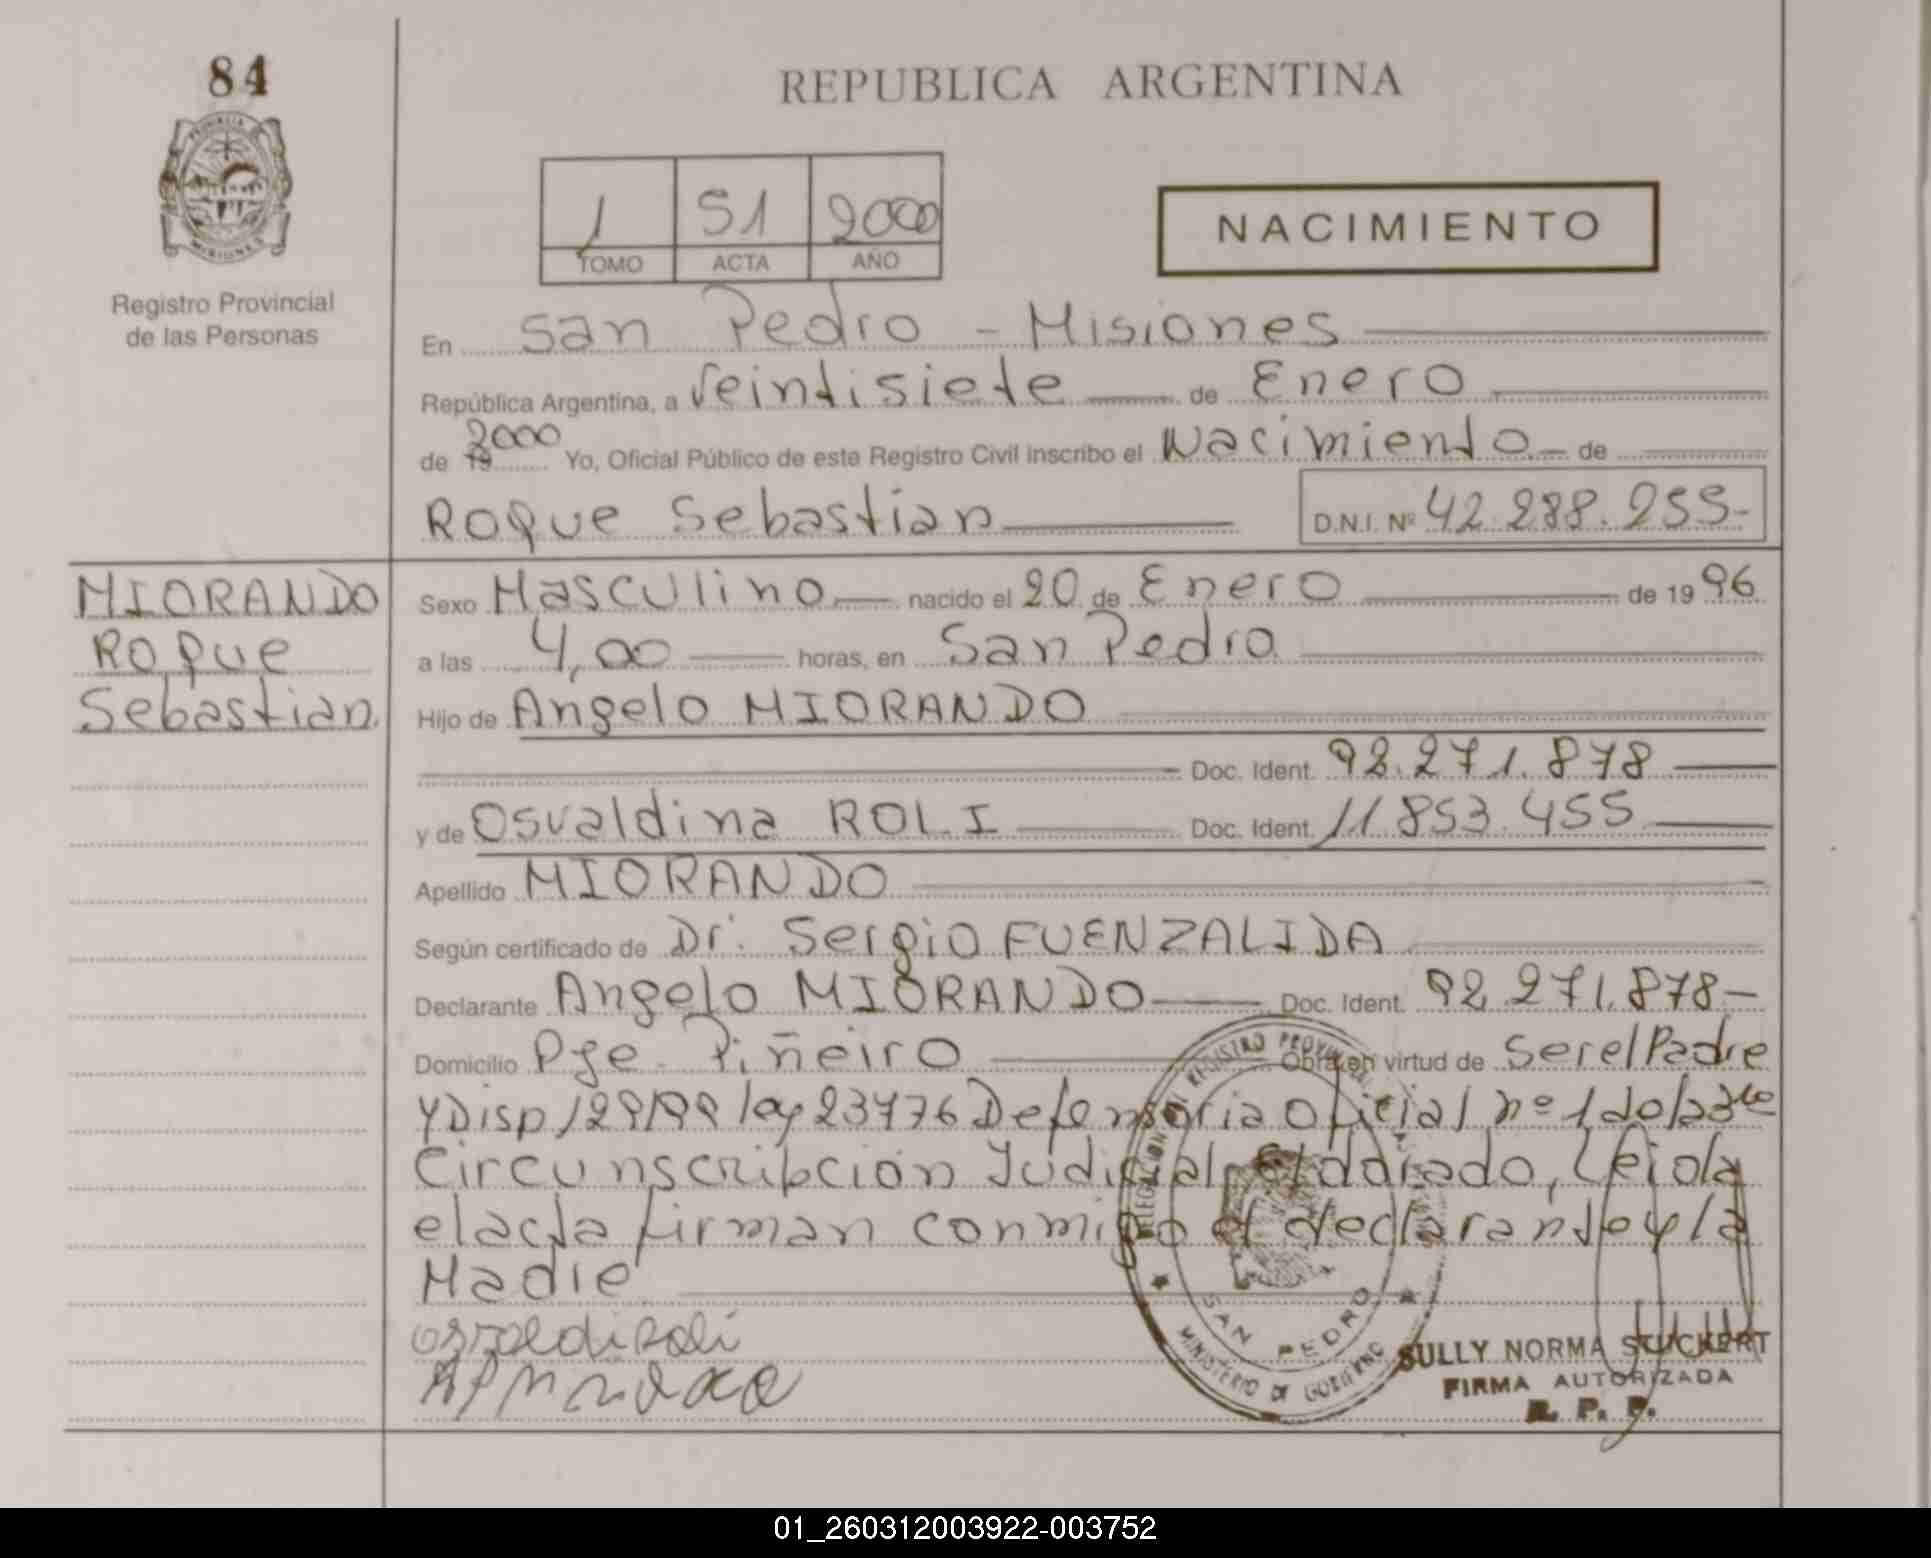 84
REPUBLICA ARGENTINA
PROVINCIA DE
MISIONES
Registro Provincial
de las Personas
1 51 2000
TOMO ACTA AÑO
NACIMIENTO
En San Pedro - Misiones
República Argentina, a Veintisiete de Enero
de 19 2000 Yo, Oficial Público de este Registro Civil inscribo el Nacimiento de
Roque Sebastian D.N.I. Nº 42.288.255-
MIORANDO
Roque
Sebastian
Sexo Masculino nacido el 20 de Enero de 19 96
a las 4,00 horas, en San Pedro
Hijo de Angelo MIORANDO
Doc. Ident. 92.271.878
y de Osvaldina ROLI Doc. Ident. 11.853.455
Apellido MIORANDO
Según certificado de Dr. Sergio FUENZALIDA
Declarante Angelo MIORANDO Doc. Ident. 92.271.878-
Domicilio Pje. Piñeiro Obra en virtud de Ser el Padre
y Disp/29/99 ley 23776 Defensoria Oficial nº 1 de la 3ra
Circunscribción Judicial Eldorado, Leiola
elacta firman conmigo el declarante y la
Madre
DELEGACION REGISTRO PROVINCIAL
SAN PEDRO
MINISTERIO DE GOBIERNO
SULLY NORMA STUCKERT
FIRMA AUTORIZADA
R. P. P.
01_260312003922-003752